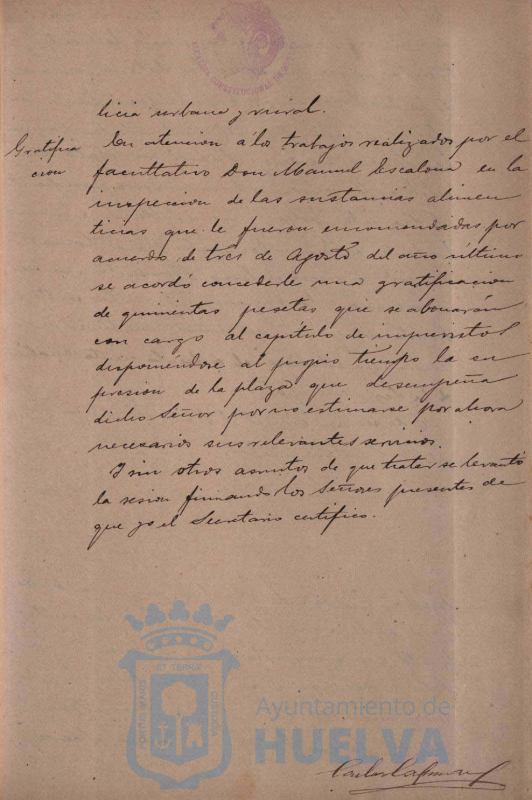 licia urbana y rural.
Gratifica
cion
En atencion a los trabajos realizados por el
facultativo Don Manuel Escalona en la
inspeccion de las sustancias alimen
ticias que le fueron encomendadas por
acuerdo de tres de Agosto del año último
se acordó concederle una gratificacion
de quinientas pesetas que se abonarán
con cargo al capitulo de imprevistos
disponiendose al propio tiempo la su
presion de la plaza que desempeña
dicho Señor por no estimarse por ahora
necesarios sus relevantes servicios.
Y sin otros asuntos de que tratar se levantó
la sesion firmando los Señores presentes de
que yo el Secretario certifico.
Ayuntamiento de
HUELVA
PORTUS MARIS
ET TERRÆ
CUSTODIA
Carlos